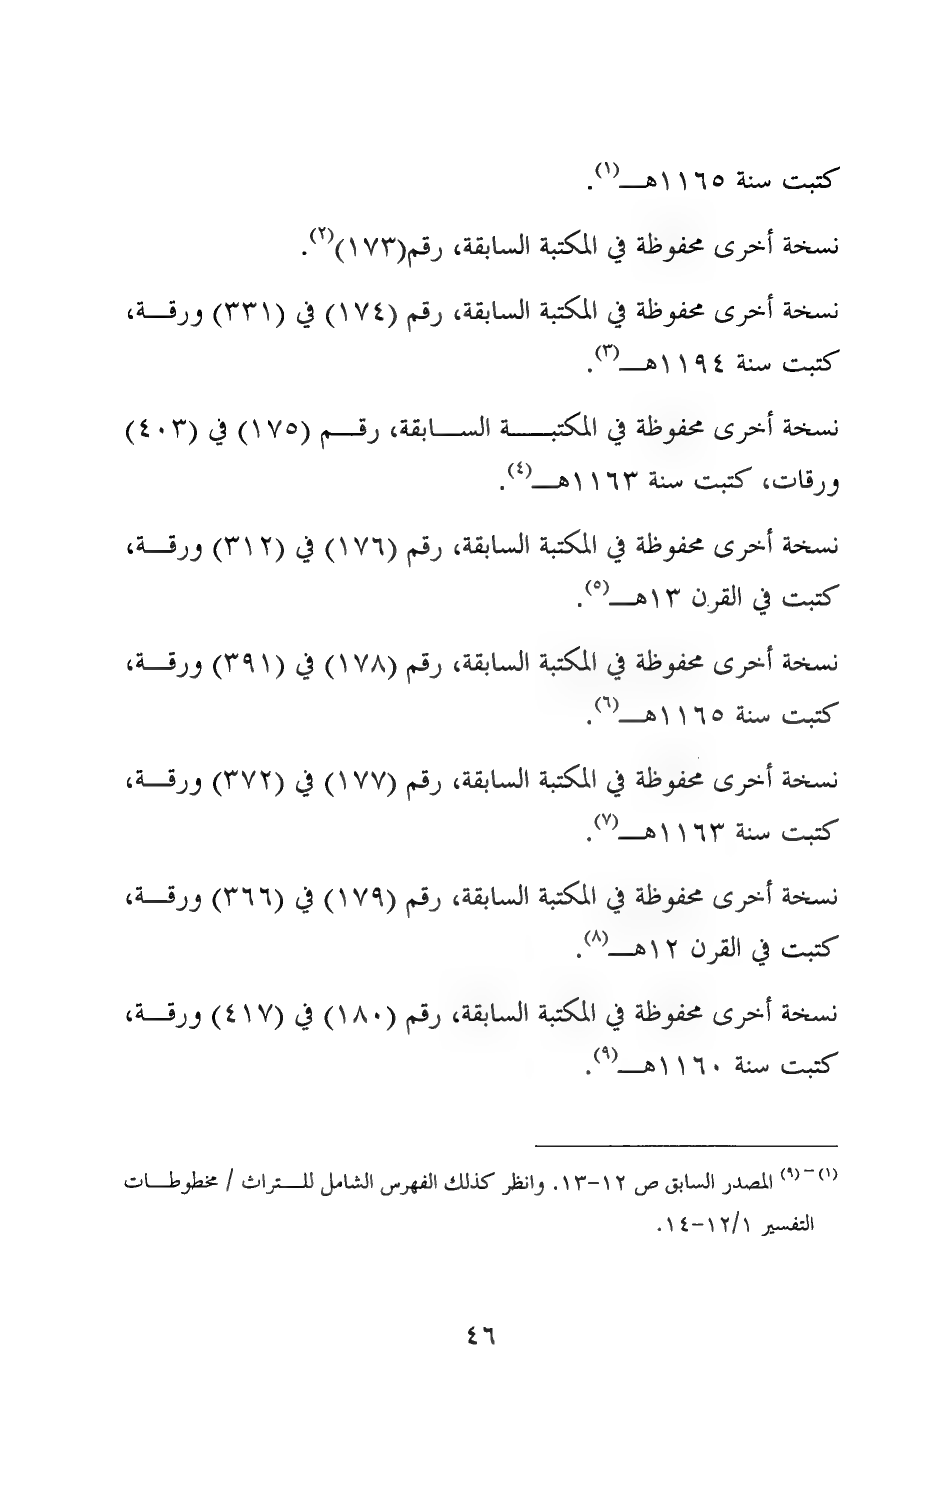 كتبت سنة ١١٦٥هـ(١).
نسخة أخرى محفوظة في المكتبة السابقة، رقم(١٧٣)(٢).
نسخة أخرى محفوظة في المكتبة السابقة، رقم (١٧٤) في (٣٣١) ورقة،
كتبت سنة ١١٩٤هـ(٣).
نسخة أخرى محفوظة في المكتبة السابقة، رقم (١٧٥) في (٤٠٣)
ورقات، كتبت سنة ١١٦٣هـ(٤).
نسخة أخرى محفوظة في المكتبة السابقة، رقم (١٧٦) في (٣١٢) ورقة،
كتبت في القرن ١٣هـ(٥).
نسخة أخرى محفوظة في المكتبة السابقة، رقم (١٧٨) في (٣٩١) ورقة،
كتبت سنة ١١٦٥هـ(٦).
نسخة أخرى محفوظة في المكتبة السابقة، رقم (١٧٧) في (٣٧٢) ورقة،
كتبت سنة ١١٦٣هـ(٧).
نسخة أخرى محفوظة في المكتبة السابقة، رقم (١٧٩) في (٣٦٦) ورقة،
كتبت في القرن ١٢هـ(٨).
نسخة أخرى محفوظة في المكتبة السابقة، رقم (١٨٠) في (٤١٧) ورقة،
كتبت سنة ١١٦٠هـ(٩).
(١) – (٩) المصدر السابق ص ١٢-١٣. وانظر كذلك الفهرس الشامل للتراث / مخطوطات
التفسير ١/ ١٢-١٤.
٤٦